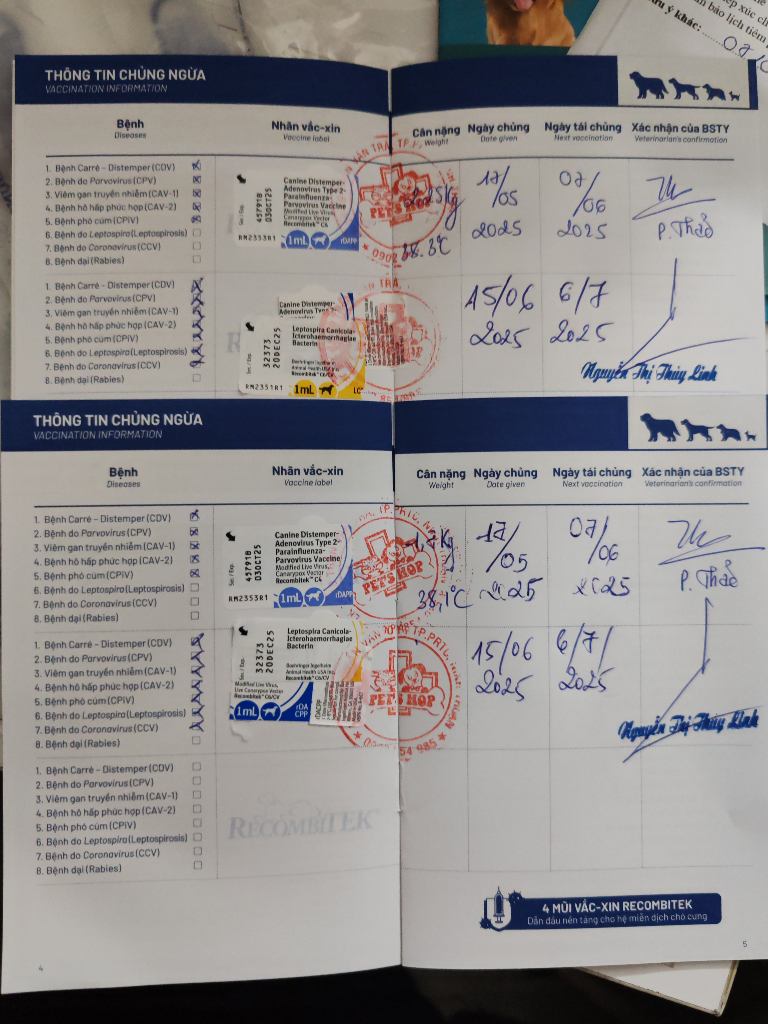 ếp xúc ch
n báo lịch tiêm
ưu ý khác:
THÔNG TIN CHỦNG NGỪA
VACCINATION INFORMATION
Bệnh
Diseases
Nhãn vắc-xin
Vaccine label
Cân nặng
Weight
Ngày chủng
Date given
Ngày tái chủng
Next vaccination
Xác nhận của BSTY
Veterinarian's confirmation
1. Bệnh Carré - Distemper (CDV)
2. Bệnh do Parvovirus (CPV)
3. Viêm gan truyền nhiễm (CAV-1)
4. Bệnh hô hấp phức hợp (CAV-2)
5. Bệnh phó cúm (CPiV)
6. Bệnh do Leptospira (Leptospirosis)
7. Bệnh do Coronavirus (CCV)
8. Bệnh dại (Rabies)
Ser. / Exp.
457918
03OCT25
RM2353R1
Canine Distemper-
Adenovirus Type 2-
Parainfluenza-
Parvovirus Vaccine
Modified Live Virus,
Canarypox Vector
Recombitek™ C4
1mL
rDAPP
PET'S HOP
38.3°C
17/05
2025
07/06
2025
P. Thảo
1. Bệnh Carré - Distemper (CDV)
2. Bệnh do Parvovirus (CPV)
3. Viêm gan truyền nhiễm (CAV-1)
4. Bệnh hô hấp phức hợp (CAV-2)
5. Bệnh phó cúm (CPiV)
6. Bệnh do Leptospira (Leptospirosis)
7. Bệnh do Coronavirus (CCV)
8. Bệnh dại (Rabies)
Canine Distemper-
Adenovirus Type 2-
Ser. / Exp.
32373
20DEC25
RM2351R1
Leptospira Canicola-
Icterohaemorrhagiae
Bacterin
Boehringer Ingelheim
Animal Health USA Inc.
Recombitek™ C6/CV
1mL
LC
SHOP
15/06
2025
6/7
2025
Nguyễn Thị Thùy Linh
THÔNG TIN CHỦNG NGỪA
VACCINATION INFORMATION
Bệnh
Diseases
Nhãn vắc-xin
Vaccine label
Cân nặng
Weight
Ngày chủng
Date given
Ngày tái chủng
Next vaccination
Xác nhận của BSTY
Veterinarian's confirmation
1. Bệnh Carré - Distemper (CDV)
2. Bệnh do Parvovirus (CPV)
3. Viêm gan truyền nhiễm (CAV-1)
4. Bệnh hô hấp phức hợp (CAV-2)
5. Bệnh phó cúm (CPiV)
6. Bệnh do Leptospira (Leptospirosis)
7. Bệnh do Coronavirus (CCV)
8. Bệnh dại (Rabies)
Ser. / Exp.
457918
03OCT25
RM2353R1
Canine Distemper-
Adenovirus Type 2-
Parainfluenza-
Parvovirus Vaccine
Modified Live Virus,
Canarypox Vector
Recombitek™ C4
1mL
rDAPP
PET'S HOP
1,7kg
38,1°C
17/05
2025
07/06
2025
P. Thảo
1. Bệnh Carré - Distemper (CDV)
2. Bệnh do Parvovirus (CPV)
3. Viêm gan truyền nhiễm (CAV-1)
4. Bệnh hô hấp phức hợp (CAV-2)
5. Bệnh phó cúm (CPiV)
6. Bệnh do Leptospira (Leptospirosis)
7. Bệnh do Coronavirus (CCV)
8. Bệnh dại (Rabies)
Ser. / Exp.
32373
20DEC25
Leptospira Canicola-
Icterohaemorrhagiae
Bacterin
Boehringer Ingelheim
Animal Health USA Inc.
Recombitek™ C6/CV
Modified Live Virus,
Live Canarypox Vector
Recombitek™ C6/CV
1mL
rDA
CPP
PET'S HOP
15/06
2025
6/7/
2025
Nguyễn Thị Thùy Linh
1. Bệnh Carré - Distemper (CDV)
2. Bệnh do Parvovirus (CPV)
3. Viêm gan truyền nhiễm (CAV-1)
4. Bệnh hô hấp phức hợp (CAV-2)
5. Bệnh phó cúm (CPiV)
6. Bệnh do Leptospira (Leptospirosis)
7. Bệnh do Coronavirus (CCV)
8. Bệnh dại (Rabies)
RECOMBITEK
4 MŨI VẮC-XIN RECOMBITEK
Dẫn đầu nền tảng cho hệ miễn dịch chó cưng
4
5